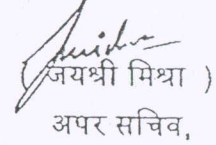 ( जयश्री मिश्रा )
अपर सचिव,